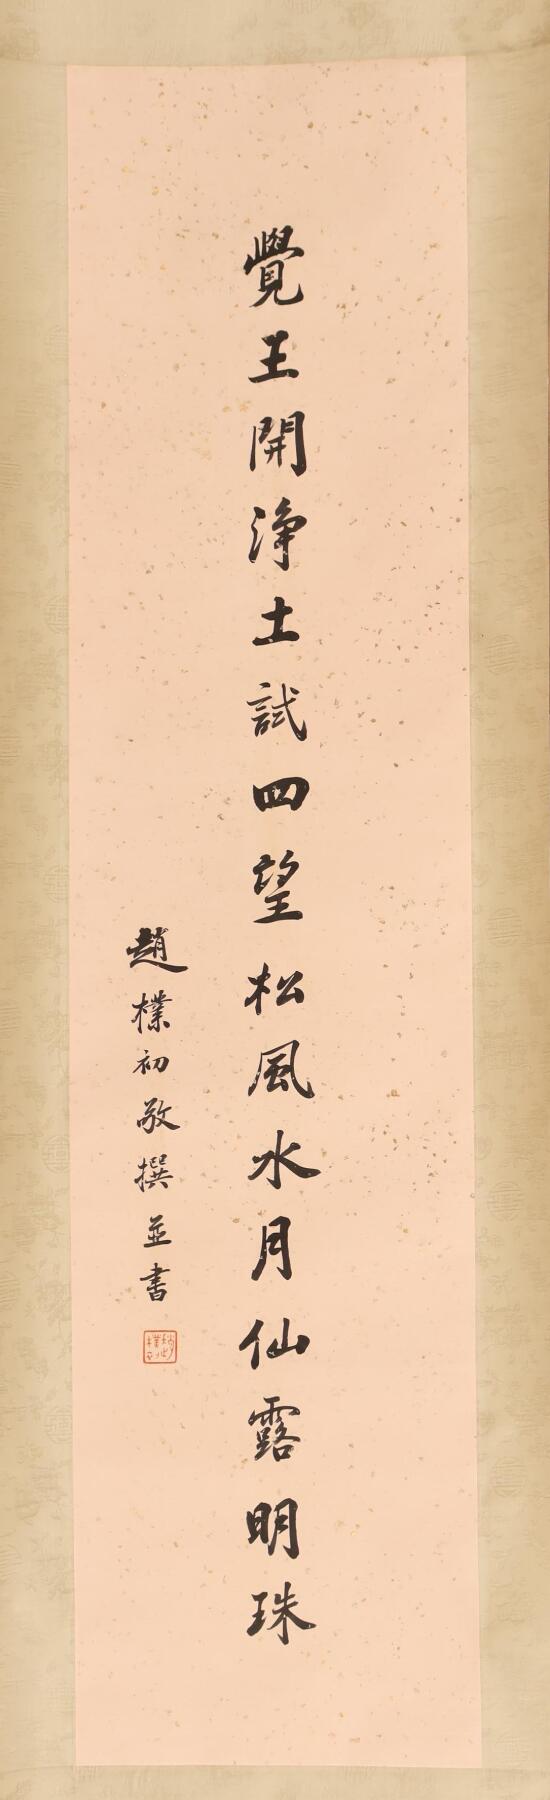 覺王開淨土試四望松風水月仙露明珠
趙樸初敬撰並書